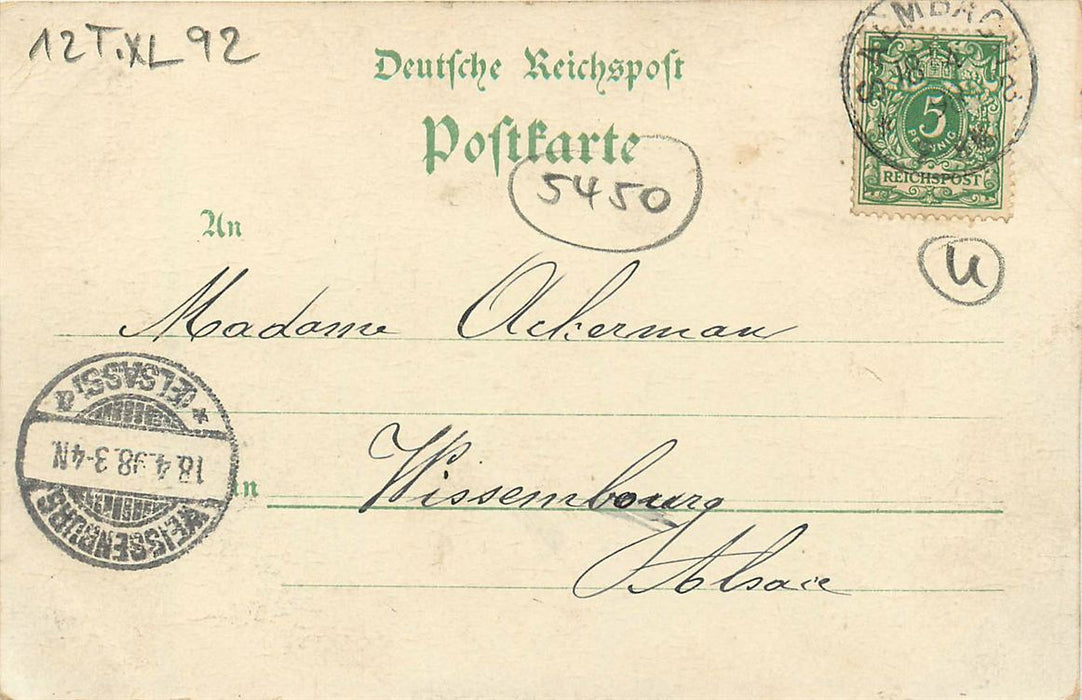 12T.XL 92
Deutsche Reichspost
Postkarte
5450
SALMBACH
18
5
PFENNIG
REICHSPOST
U
An
Madame Ackerman
WEISSENBURG
18.4.98.3-4N.
*(ELSASS)a
in
Wissembourg
Alsace